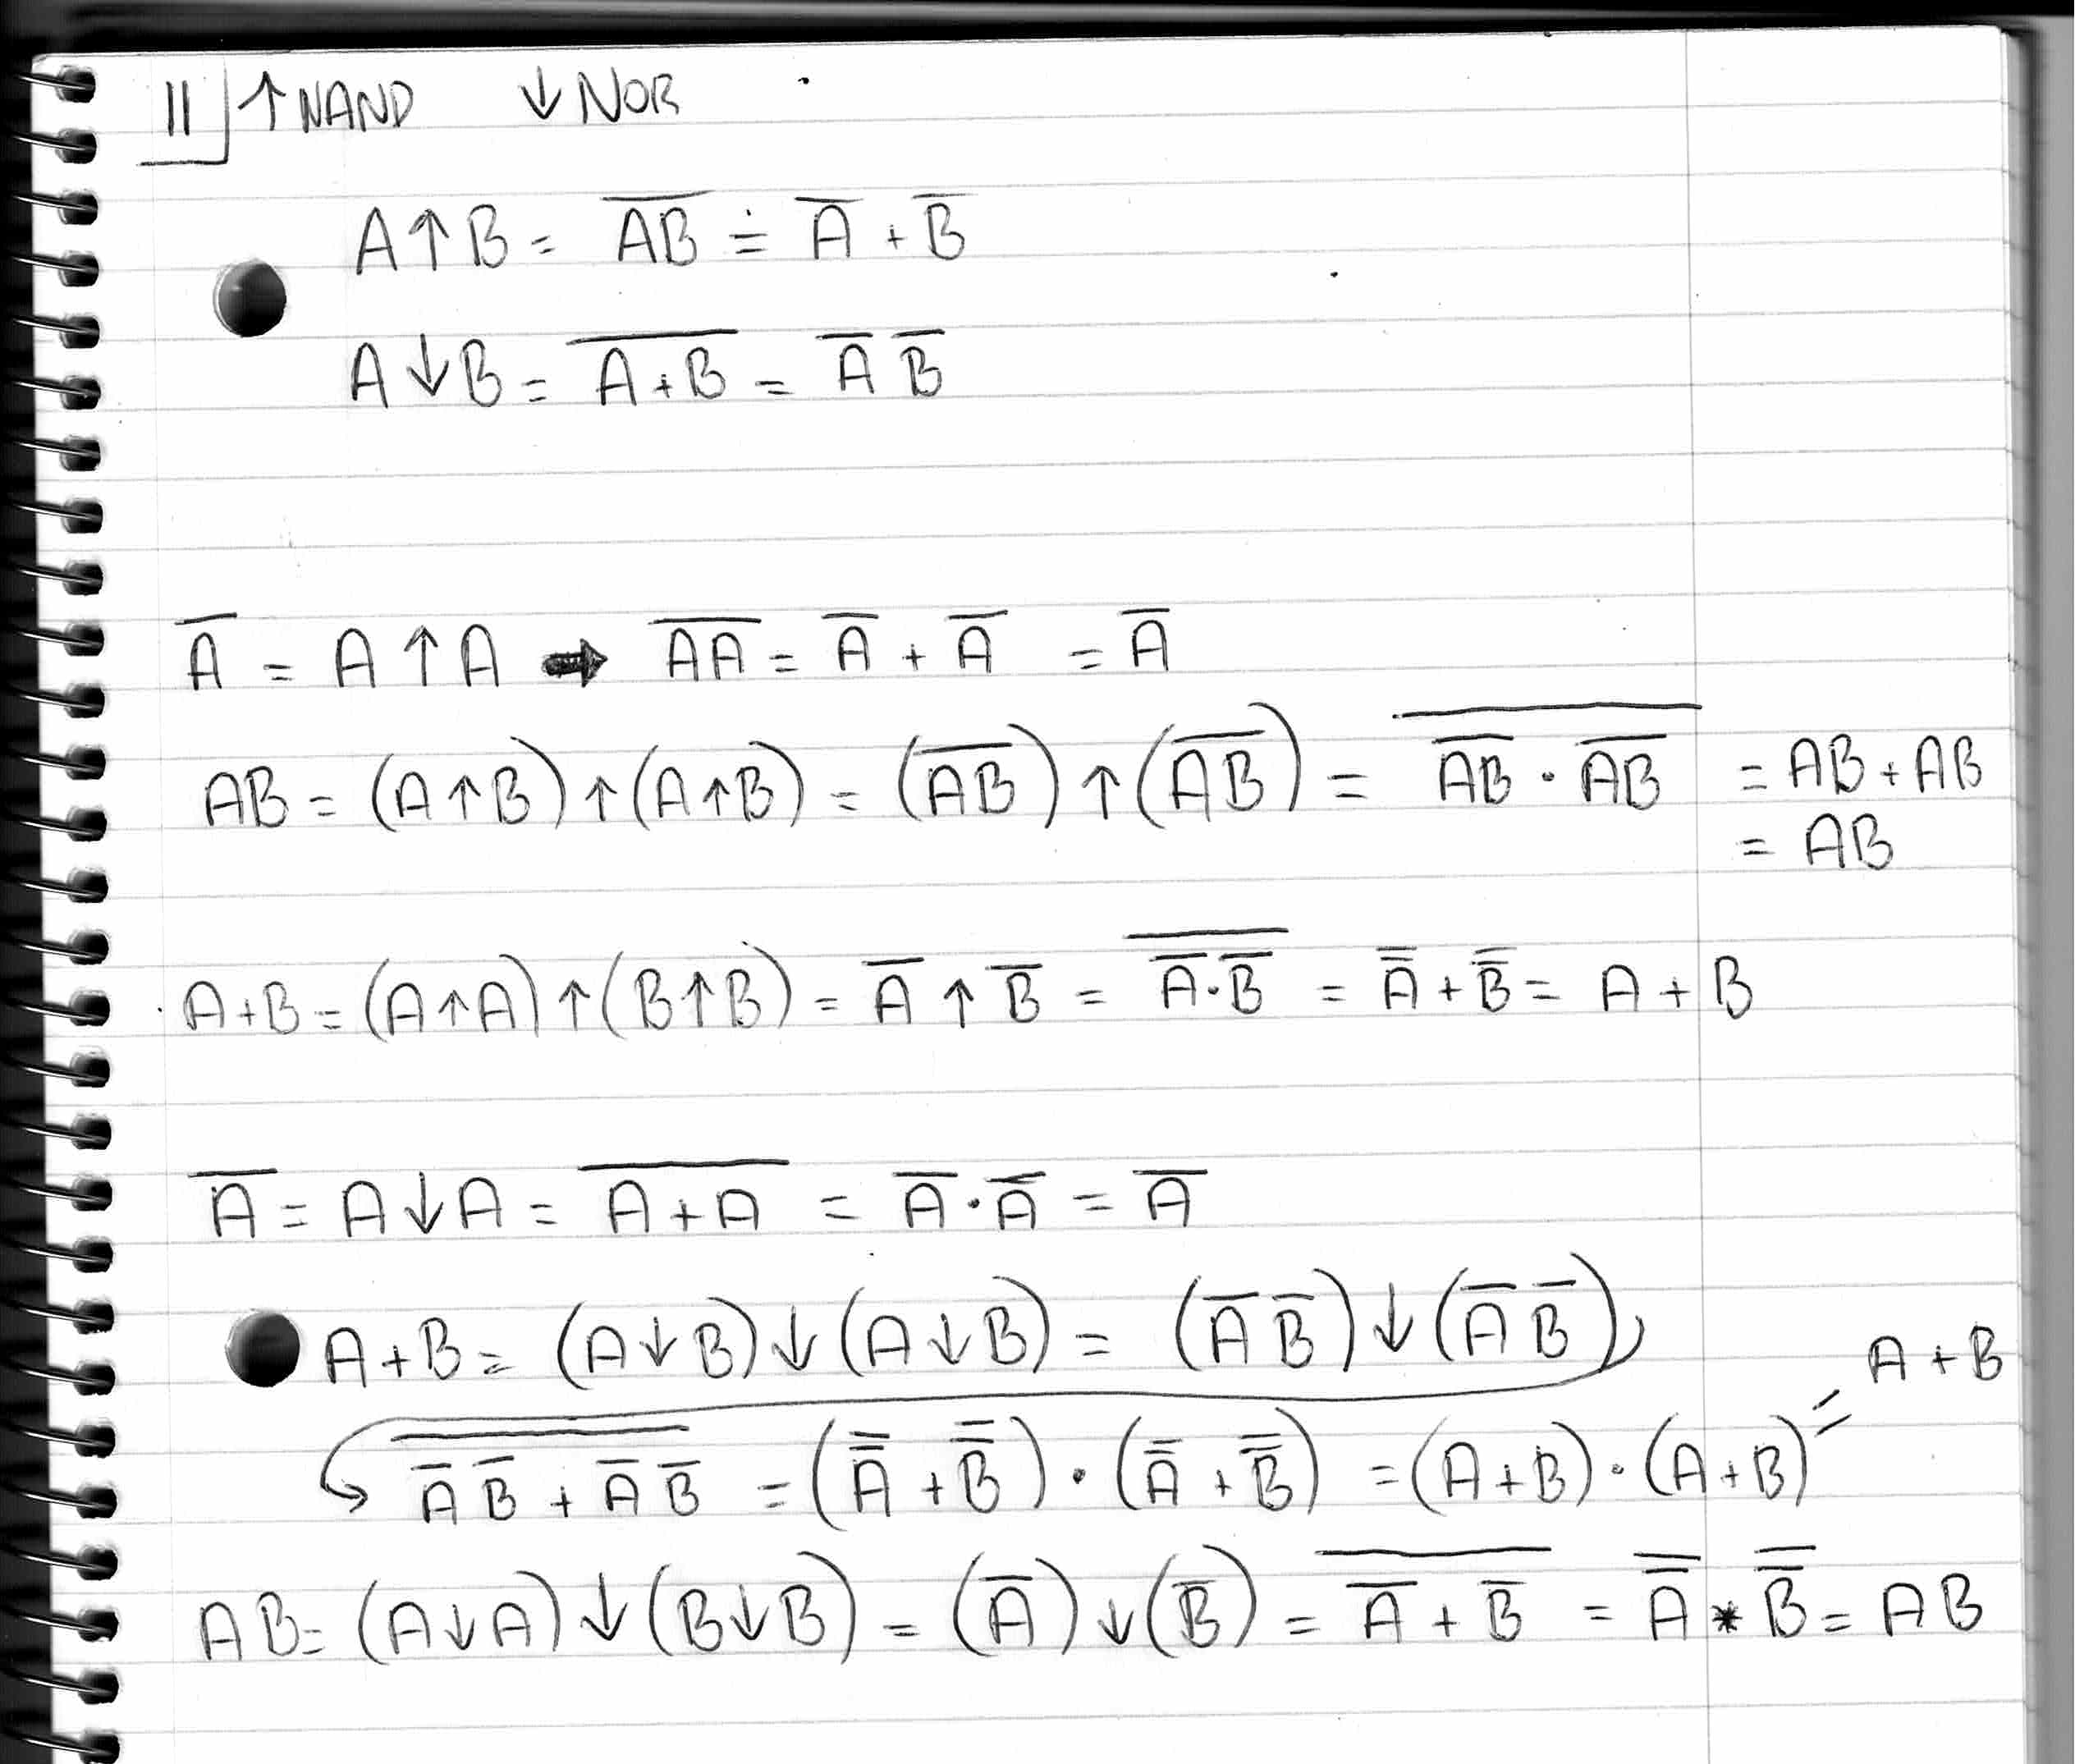 11 ↑ NAND ↓ NOR
A ↑ B = A̅B̅ = A̅ + B̅
A ↓ B = \overline{A+B} = A̅ B̅
A̅ = A ↑ A → \overline{AA} = A̅ + A̅ = A̅
AB = (A↑B) ↑ (A↑B) = (\overline{AB}) ↑ (\overline{AB}) = \overline{\overline{AB} · \overline{AB}} = AB + AB
= AB
A+B = (A↑A) ↑ (B↑B) = A̅ ↑ B̅ = \overline{A̅·B̅} = \overline{\overline{A}} + \overline{\overline{B}} = A + B
A̅ = A↓A = \overline{A+A} = A̅·A̅ = A̅
A+B = (A↓B) ↓ (A↓B) = (A̅ B̅) ↓ (A̅ B̅)
\overline{A̅ B̅ + A̅ B̅} = (\overline{\overline{A}} + \overline{\overline{B}}) · (\overline{\overline{A}} + \overline{\overline{B}}) = (A+B)·(A+B) = A+B
AB = (A↓A) ↓ (B↓B) = (A̅) ↓ (B̅) = \overline{A̅ + B̅} = \overline{\overline{A}} * \overline{\overline{B}} = AB